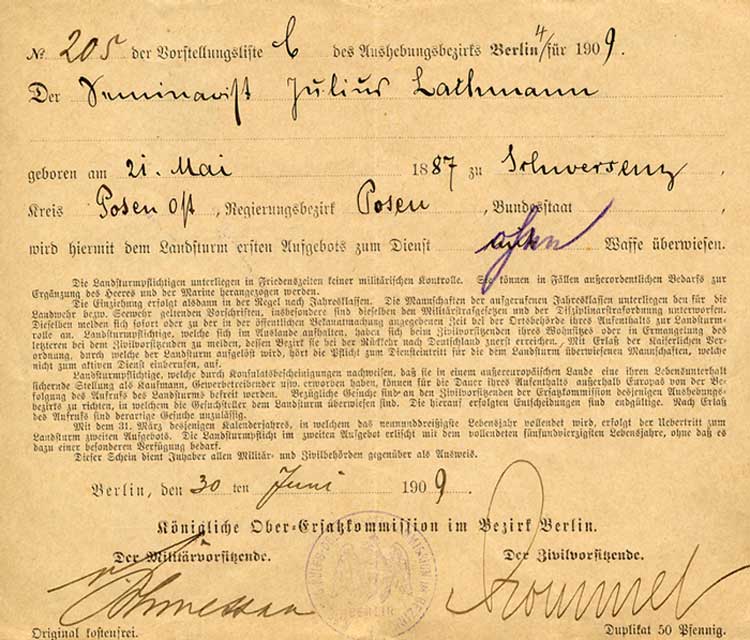 № 205 der Vorstellungsliste C des Aushebungsbezirks Berlin 4/für 1909.
Der Seminarist Julius Lachmann
geboren am 21. Mai 1887 zu Schwersenz,
Kreis Posen Ost, Regierungsbezirk Posen, Bundesstaat ,
wird hiermit dem Landsturm ersten Aufgebots zum Dienst ohne Waffe überwiesen.
Die Landsturmpflichtigen unterliegen in Friedenszeiten keiner militärischen Kontrolle. Sie können in Fällen außerordentlichen Bedarfs zur
Ergänzung des Heeres und der Marine herangezogen werden.
Die Einziehung erfolgt alsdann in der Regel nach Jahresklassen. Die Mannschaften der aufgerufenen Jahresklassen unterliegen den für die
Landwehr bezw. Seewehr geltenden Vorschriften, insbesondere sind dieselben den Militärstrafgesetzen und der Disziplinarstrafordnung unterworfen.
Dieselben melden sich sofort oder zu der in der öffentlichen Bekanntmachung angegebenen Zeit bei der Ortsbehörde ihres Aufenthalts zur Landsturm-
rolle an. Landsturmpflichtige, welche sich im Auslande aufhalten, haben sich beim Zivilvorsitzenden ihres Wohnsitzes oder in Ermangelung des
letzteren bei dem Zivilvorsitzenden zu melden, dessen Bezirk sie bei der Rückkehr nach Deutschland zuerst erreichen. Mit Erlaß der Kaiserlichen Ver-
ordnung, durch welche der Landsturm aufgelöst wird, hört die Pflicht zum Diensteintritt für die dem Landsturm überwiesenen Mannschaften, welche
nicht zum aktiven Dienst einberufen, auf.
Landsturmpflichtige, welche durch Konsulatsbescheinigungen nachweisen, daß sie in einem außereuropäischen Lande eine ihren Lebensunterhalt
sichernde Stellung als Kaufmann, Gewerbetreibender usw. erworben haben, können für die Dauer ihres Aufenthalts außerhalb Europas von der Be-
folgung des Aufrufs des Landsturms befreit werden. Bezügliche Gesuche sind an den Zivilvorsitzenden der Ersatzkommission desjenigen Aushebungs-
bezirks zu richten, in welchem die Gesuchsteller dem Landsturm überwiesen sind. Die hierauf erfolgten Entscheidungen sind endgültige. Nach Erlaß
des Aufrufs sind derartige Gesuche unzulässig.
Mit dem 31. März desjenigen Kalenderjahres, in welchem das neununddreißigste Lebensjahr vollendet wird, erfolgt der Uebertritt zum
Landsturm zweiten Aufgebots. Die Landsturmpflicht im zweiten Aufgebot erlischt mit dem vollendeten fünfundvierzigsten Lebensjahre, ohne daß es
dazu einer besonderen Verfügung bedarf.
Dieser Schein dient Inhaber allen Militär- und Zivilbehörden gegenüber als Ausweis.
Berlin, den 30 ten Juni 1909.
Königliche Ober-Ersatzkommission im Bezirk Berlin.
Der Militärvorsitzende. Der Zivilvorsitzende.
BERLIN
Original kostenfrei. Duplikat 50 Pfennig.